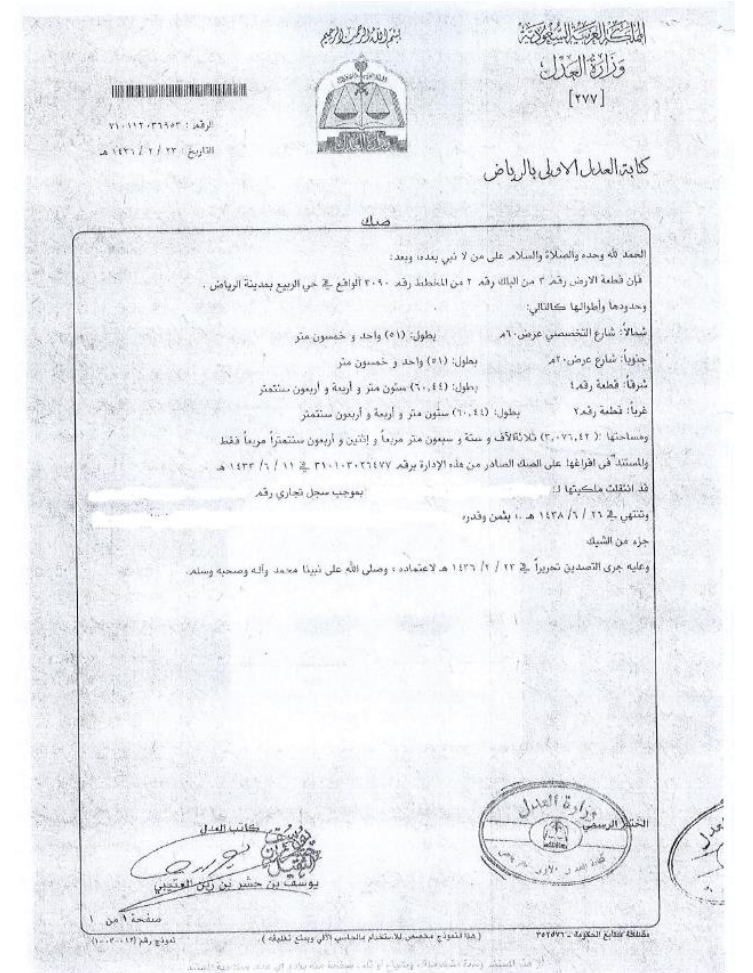 المملكة العربية السعودية
وزارة العدل
[٢٧٧]
بسم الله الرحمن الرحيم
وزارة العدل
الرقم : ٧١٠١١٢٠٣٦٩٥٣
التاريخ : ٢٣ / ٢ / ١٤٣٦ هـ
كتابة العدل الاولى بالرياض
صك
الحمد لله وحده والصلاة والسلام على من لا نبي بعده، وبعد:
فإن قطعة الارض رقم ٣ من البلك رقم ٢ من المخطط رقم ٣٠٩٠ الواقع في حي الربيع بمدينة الرياض .
وحدودها وأطوالها كالتالي:
شمالاً: شارع التخصصي عرض ٦٠م بطول: (٥١) واحد و خمسون متر
جنوباً: شارع عرض ٢٠م بطول: (٥١) واحد و خمسون متر
شرقاً: قطعة رقم ٤ بطول: (٦٠,٤٤) ستون متر و أربعة و أربعون سنتمتر
غرباً: قطعة رقم ٢ بطول: (٦٠,٤٤) ستون متر و أربعة و أربعون سنتمتر
ومساحتها :(٣,٠٧٦,٤٢) ثلاثةآلاف و ستة و سبعون متر مربعاً و إثنين و أربعون سنتمتراً مربعاً فقط
والمستند في افراغها على الصك الصادر من هذه الإدارة برقم ٣١٠١٠٣٠٢٦٤٧٧ في ١١ / ٦ / ١٤٣٣ هـ
قد انتقلت ملكيتها لـ: بموجب سجل تجاري رقم
وتنتهي في ٢٦ / ٦ / ١٤٣٨ هـ .، بثمن وقدره
جزء من الشيك
وعليه جرى التصديق تحريراً في ٢٣ / ٢ / ١٤٣٦ هـ لاعتماده ، وصلى الله على نبينا محمد وآله وصحبه وسلم.
كاتب العدل
يوسف بن حشر بن زين العتيبي
الختم الرسمي
وزارة العدل
صفحة ١ من ١
مصلحة مطابع الحكومة - ٣٥٢٥٧٦
( هذا النموذج مخصص للاستخدام بالحاسب الآلي ويمنع تغليفه )
نموذج رقم (١٢-٠٣-١٠٠)